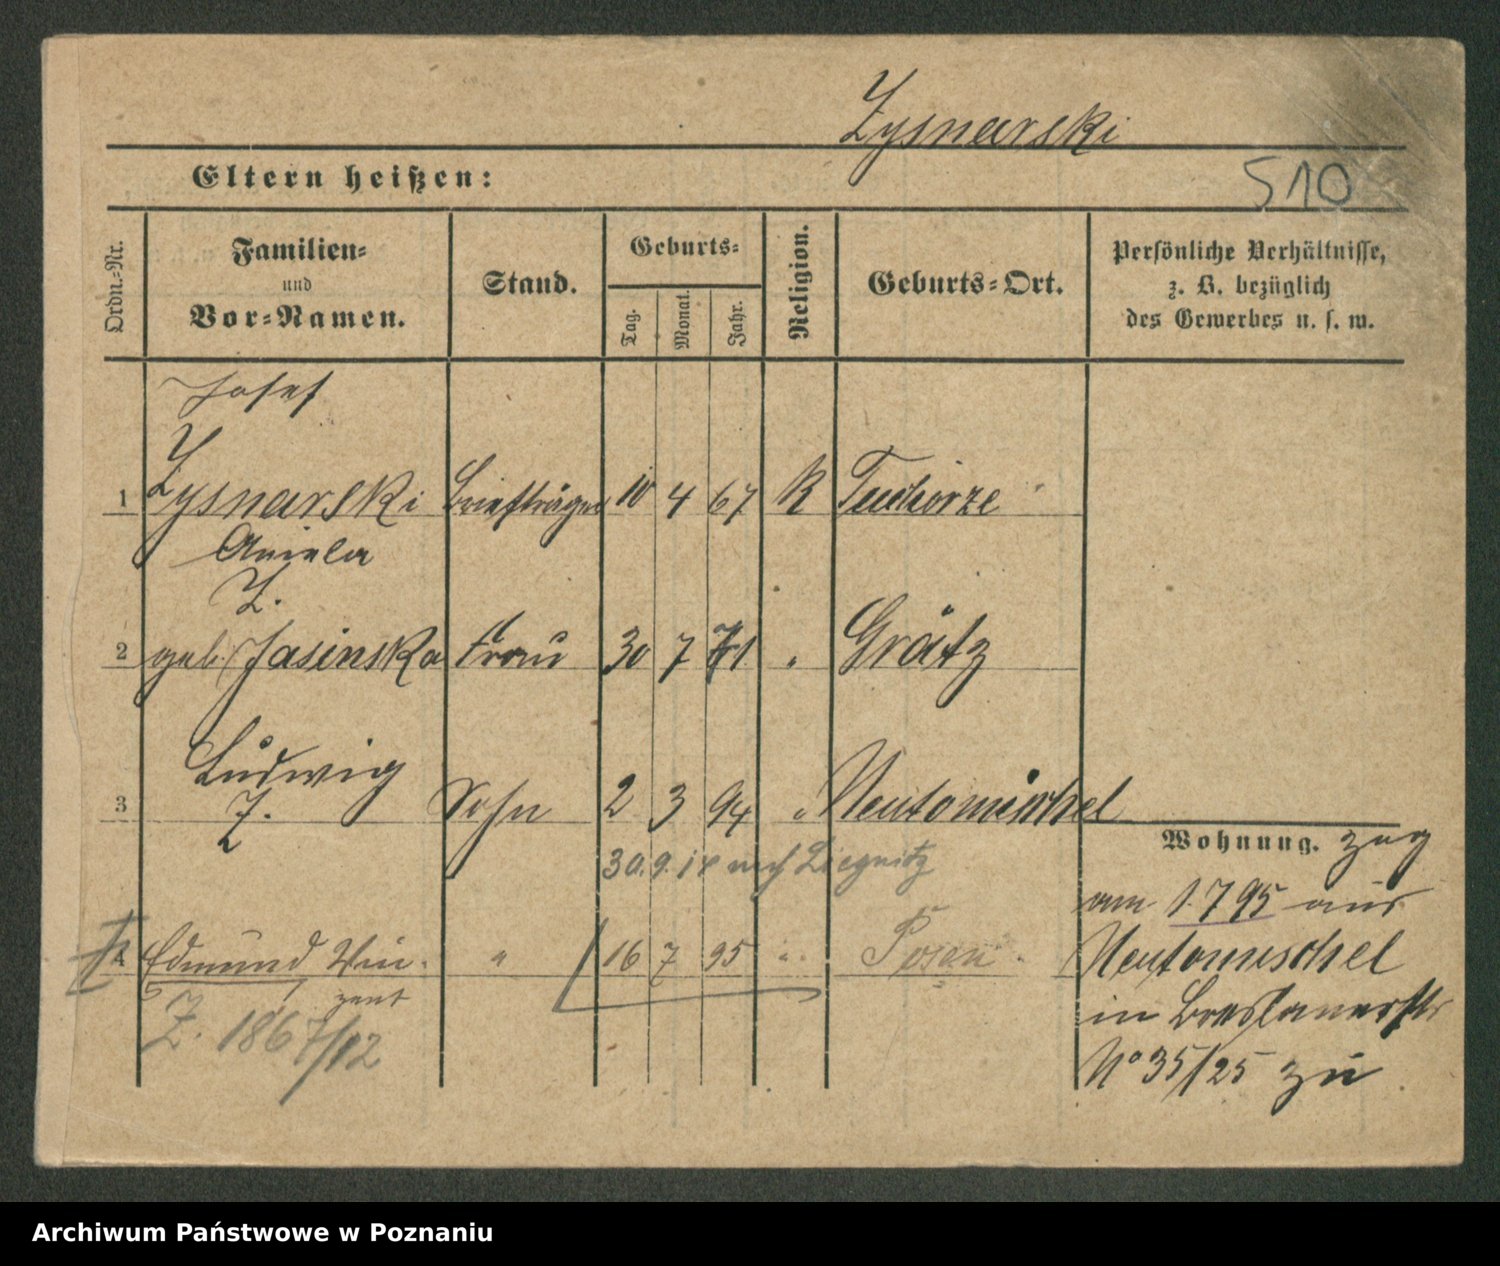 Zysnarski
Eltern heißen:
510
Ordn.-Nr.
Familien-
und
Vor-Namen.
Stand.
Geburts-
Tag.
Monat.
Jahr.
Religion.
Geburts-Ort.
Persönliche Verhältnisse,
z. B. bezüglich
des Gewerbes u. s. w.
Josef
1 Zysnarski Briefträger 10 4 67 K Tuchorze
Aniela
Z.
2 geb. Jasinska Frau 30 7 71 " Grätz
Ludwig
3 Z. Sohn 2 3 94 " Neutomischel
30.9.18 nach Liegnitz
4 Edmund Vin- " 16 7 95 " Posen
zent
Z. 1867/12
Wohnung. zog
am 1.7.95 aus
Neutomischel
in Breslauerstr
No 35/25 zu
Archiwum Państwowe w Poznaniu